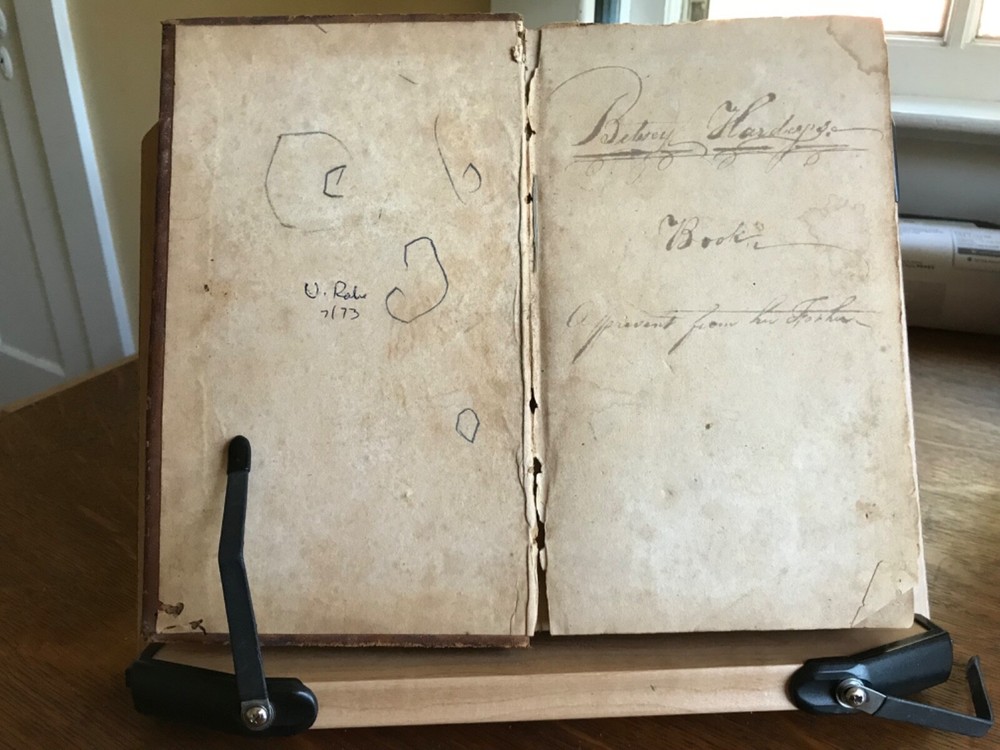 U. Rahe
7/73
Betsey
Book
A present from her Father